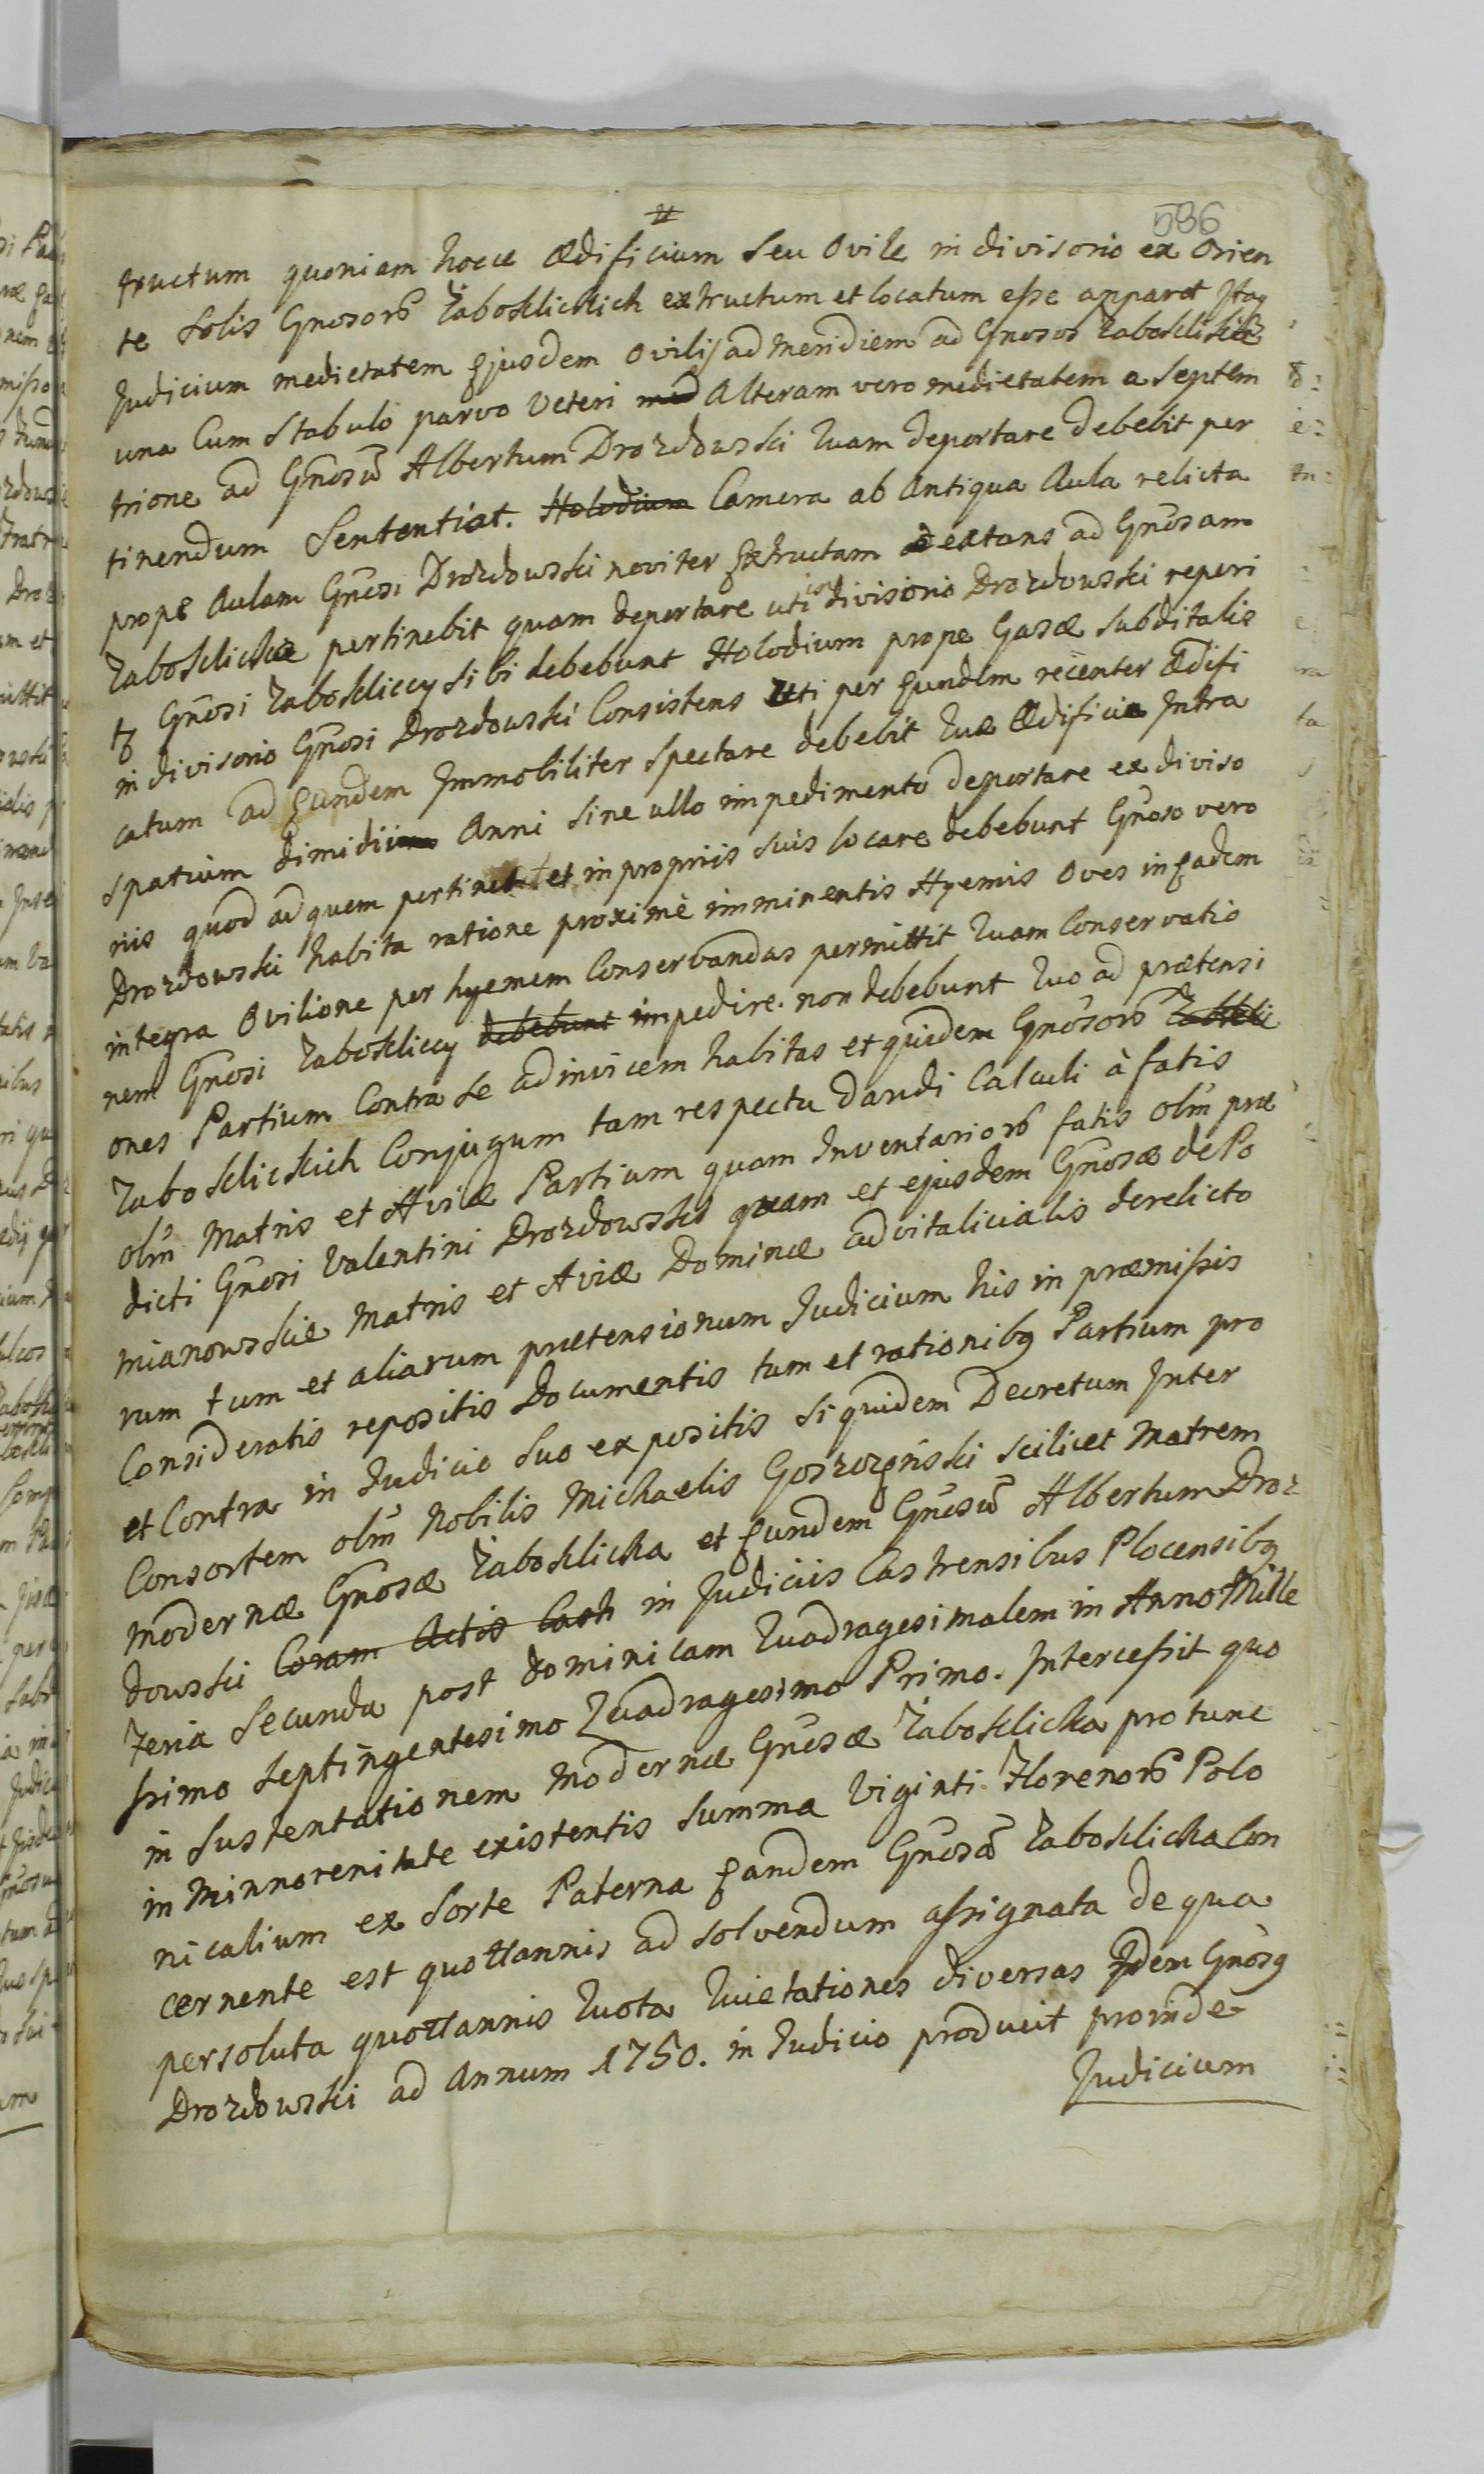 586
tructum quoniam hocce ædificium Seu Ovile in divisorio ex Orien
te Solis Gnosorũ Zaboklickich extructum et locatum esse apparet Itaq
Judicium medietatem Ejusdem Ovilis ad Meridiem ad Gnosos Zaboklickie
una Cum Stabulo parvo Veteri med Alteram vero medietatem a Septem
trione ad Gnosũ Albertum Drozdowski Quam deportare debebit per
tinendum Sententiat. Holodium Camera ab Antiqua Aula relicta
prope Aulam Gnosi Drozdowski noviter Extructam extans ad Gnosam
Zaboklicka pertinebit quam deportare uti in divisorio Drozdowski reperi
tʒ Gnosi Zabokliccy sibi debebunt Holodium prope Casæ Subditalis
in divisorio Gnosi Drozdowski Consistens Uti per Eundem recenter Ædifi
catum ad Eundem Immobiliter Spectare debebit Quæ Ædificia Intra
Spatium dimidii Anni Sine ullo impedimento deportare ex diviso
riis quod ad quem pertinet et in propriis Suis locare debebunt Gnoso vero
Drozdowski habita ratione proximè imminentis Hyemis Oves in Eadem
integra Ovilione per hyemem Conservandas permittit Quam Conservatio
nem Gnosi Zabokliccy debebunt impedire. non debebunt Quo ad prætensi
ones Partium Contra Se ad invicem habitas et quidem Gnosorũ Zaboklic
Zaboklickich Conjugum tam respectu dandi Calculi à fatis
olim Matris et Aviæ Partium quam Inventariorũ fatis olim præ
dicti Gnosi Valentini Drozdowski quam et ejusdem Gnosæ de Po
mianowskie Matris et Aviæ Dominæ advitalicialis derelicto
rum tum et aliarum prætensionum Judicium his in præmissis
Consideratis repositis Documentis tum et rationibq Partium pro
et Contra in Judicio Suo expositis Siquidem Decretum Inter
Consortem olim Nobilis Michaelis Goszczyński scilicet Matrem
modernæ Gnosæ Zaboklicka et Eundem Gnosũ Albertum Droz
dowski Coram Actis Castr in Judiciis Castrensibus Plocensibq
Feria Secunda post dominicam Quadragesimalem in Anno Mille
simo Septingentesimo Quadragesimo Primo. Intercessit quo
in Sustentationem modernæ Gnosæ Zaboklicka pro tunc
in Minnorenitate existentis Summa Viginti Florenorũ Polo
nicalium ex Sorte Paterna Eandem Gnosã Zaboklicka Con
cernente est quottannis ad Solvendum assignata de qua
persoluta quottannis Quota Quietationes diversas Idem Gnosq
Drozdowski ad Annum 1750. in Judicio producit proinde
Judicium